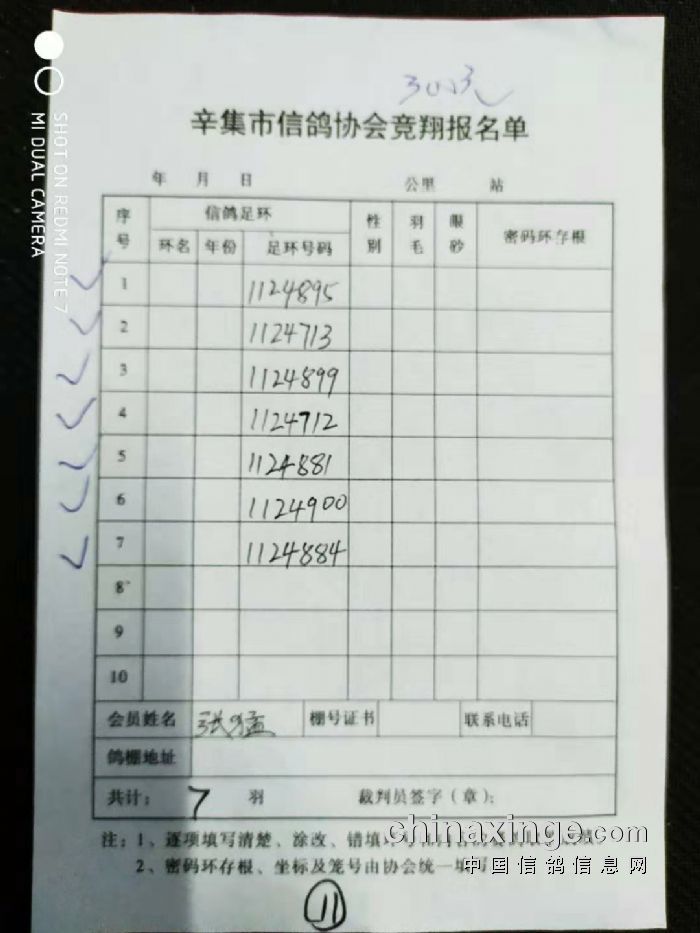 辛集市信鸽协会竞翔报名单
年 月 日 公里 站
序号 信鸽足环 性别 羽毛 眼砂 密码环存根
环名 年份 足环号码
1 1124895
2 1124713
3 1124899
4 1124712
5 1124881
6 1124900
7 1124884
8
9
10
会员姓名 张猛 棚号证书 联系电话
鸽棚地址
共计: 7 羽 裁判员签字(章):
注:1、逐项填写清楚、涂改、错填
2、密码环存根、坐标及笼号由协会统一填写
11
chinaxinge.com
中国信鸽信息网
SHOT ON REDMI NOTE 7
MI DUAL CAMERA